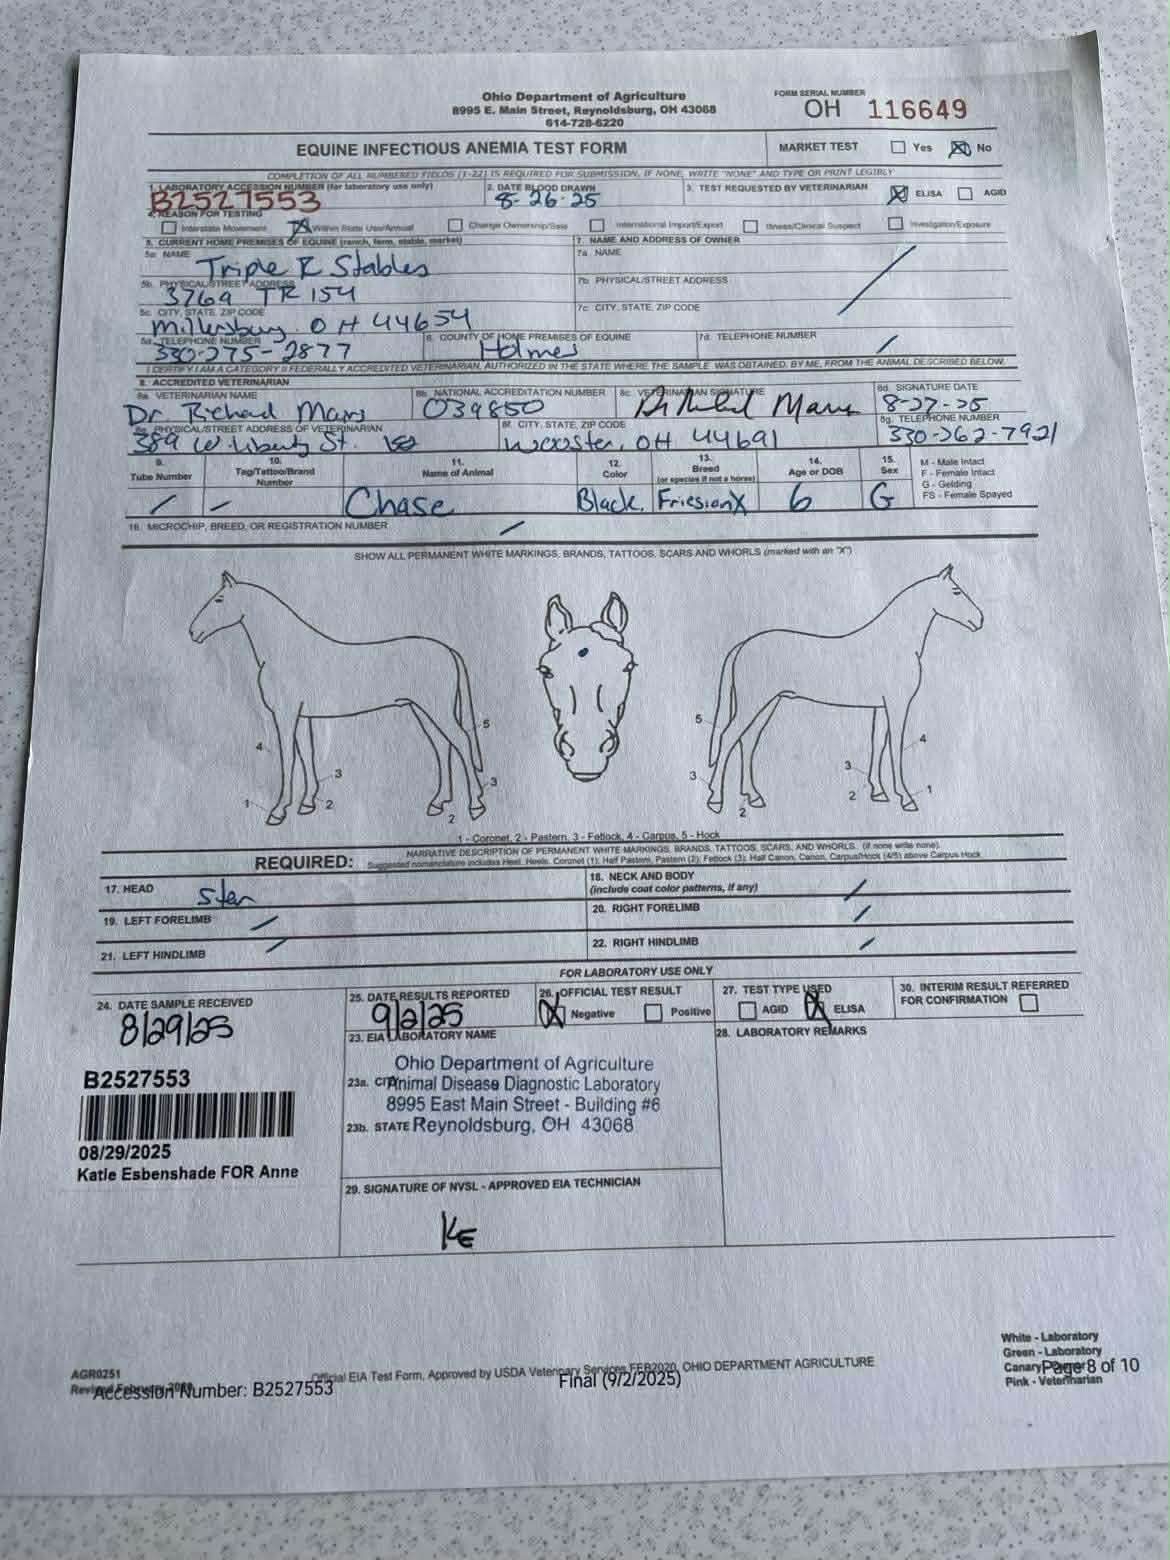 Ohio Department of Agriculture
8995 E. Main Street, Reynoldsburg, OH 43068
614-728-6220
FORM SERIAL NUMBER
OH 116649
EQUINE INFECTIOUS ANEMIA TEST FORM
MARKET TEST Yes No
COMPLETION OF ALL NUMBERED FIELDS (1-22) IS REQUIRED FOR SUBMISSION, IF NONE, WRITE "NONE" AND TYPE OR PRINT LEGIBLY
1. LABORATORY ACCESSION NUMBER (for laboratory use only)
B2527553
2. DATE BLOOD DRAWN
8-26-25
3. TEST REQUESTED BY VETERINARIAN ELISA AGID
4. REASON FOR TESTING
Interstate Movement Within State Use/Annual Change Ownership/Sale International Import/Export Illness/Clinical Suspect Investigation/Exposure
5. CURRENT HOME PREMISES OF EQUINE (ranch, farm, stable, market)
5a. NAME
Triple R Stables
5b. PHYSICAL/STREET ADDRESS
3769 TR 154
5c. CITY, STATE, ZIP CODE
Millersburg, OH 44654
5d. TELEPHONE NUMBER
330-275-2877
6. COUNTY OF HOME PREMISES OF EQUINE
Holmes
7. NAME AND ADDRESS OF OWNER
7a. NAME
7b. PHYSICAL/STREET ADDRESS
7c. CITY, STATE, ZIP CODE
7d. TELEPHONE NUMBER
I CERTIFY I AM A CATEGORY II FEDERALLY ACCREDITED VETERINARIAN, AUTHORIZED IN THE STATE WHERE THE SAMPLE WAS OBTAINED, BY ME, FROM THE ANIMAL DESCRIBED BELOW.
8. ACCREDITED VETERINARIAN
8a. VETERINARIAN NAME
Dr. Richard Mairs
8b. NATIONAL ACCREDITATION NUMBER
039850
8c. VETERINARIAN SIGNATURE
8d. SIGNATURE DATE
8-27-25
8e. PHYSICAL/STREET ADDRESS OF VETERINARIAN
389 W. Liberty St.
8f. CITY, STATE, ZIP CODE
Wooster, OH 44691
8g. TELEPHONE NUMBER
330-262-7921
9. Tube Number
10. Tag/Tattoo/Brand Number
11. Name of Animal
Chase
12. Color
Black
13. Breed (or species if not a horse)
FriesionX
14. Age or DOB
6
15. Sex
G
M - Male Intact
F - Female Intact
G - Gelding
FS - Female Spayed
16. MICROCHIP, BREED, OR REGISTRATION NUMBER
SHOW ALL PERMANENT WHITE MARKINGS, BRANDS, TATTOOS, SCARS AND WHORLS (marked with an "X")
5 5
4 4
3 3 3 3
1 2 2 2 2 1
1 - Coronet, 2 - Pastern, 3 - Fetlock, 4 - Carpus, 5 - Hock
REQUIRED:
NARRATIVE DESCRIPTION OF PERMANENT WHITE MARKINGS, BRANDS, TATTOOS, SCARS, AND WHORLS. (if none write none).
Suggested nomenclature includes Heel, Heels, Coronet (1); Half Pastern, Pastern (2); Fetlock (3); Half Canon, Canon, Carpus/Hock (4/5) above Carpus Hock
17. HEAD
Star
18. NECK AND BODY
(include coat color patterns, if any)
19. LEFT FORELIMB
20. RIGHT FORELIMB
21. LEFT HINDLIMB
22. RIGHT HINDLIMB
FOR LABORATORY USE ONLY
24. DATE SAMPLE RECEIVED
8/29/25
25. DATE RESULTS REPORTED
9/2/25
26. OFFICIAL TEST RESULT
Negative Positive
27. TEST TYPE USED
AGID ELISA
30. INTERIM RESULT REFERRED FOR CONFIRMATION
23. EIA LABORATORY NAME
Ohio Department of Agriculture
23a. CITY
Animal Disease Diagnostic Laboratory
8995 East Main Street - Building #6
23b. STATE Reynoldsburg, OH 43068
28. LABORATORY REMARKS
B2527553
08/29/2025
Katie Esbenshade FOR Anne
29. SIGNATURE OF NVSL - APPROVED EIA TECHNICIAN
KE
AGR0251
Official EIA Test Form, Approved by USDA Veterinary Services FEB2020, OHIO DEPARTMENT AGRICULTURE
Accession Number: B2527553
Final (9/2/2025)
White - Laboratory
Green - Laboratory
Page 8 of 10
Pink - Veterinarian